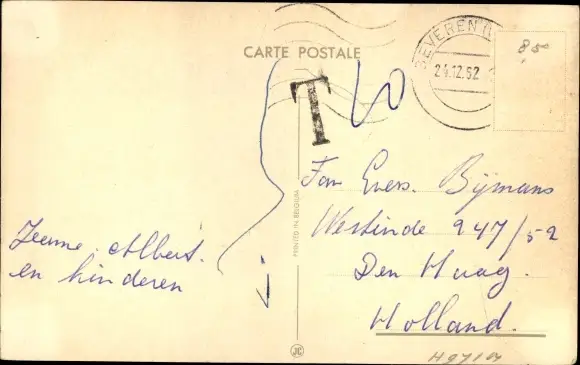 CARTE POSTALE
BEVEREN
24.12.52
8,50
T
Jeanne. Albert.
en kinderen
PRINTED IN BELGIUM
Fam Evers. Bijmans
Westinde 247/52
Den Haag.
Holland.
JC